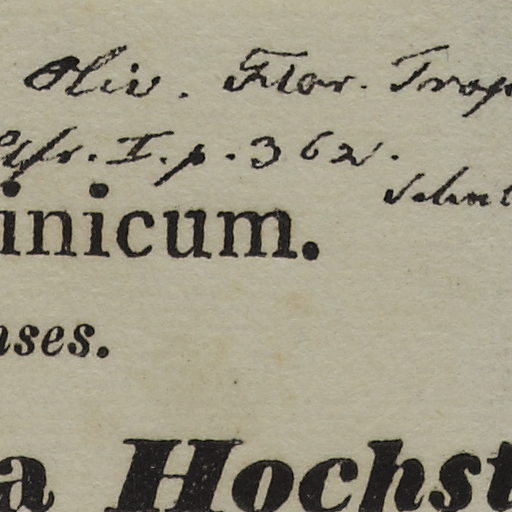 Oliv. Flor. Trop
Afr. I. p. 362.
Schw
inicum.
nses.
a Hochst